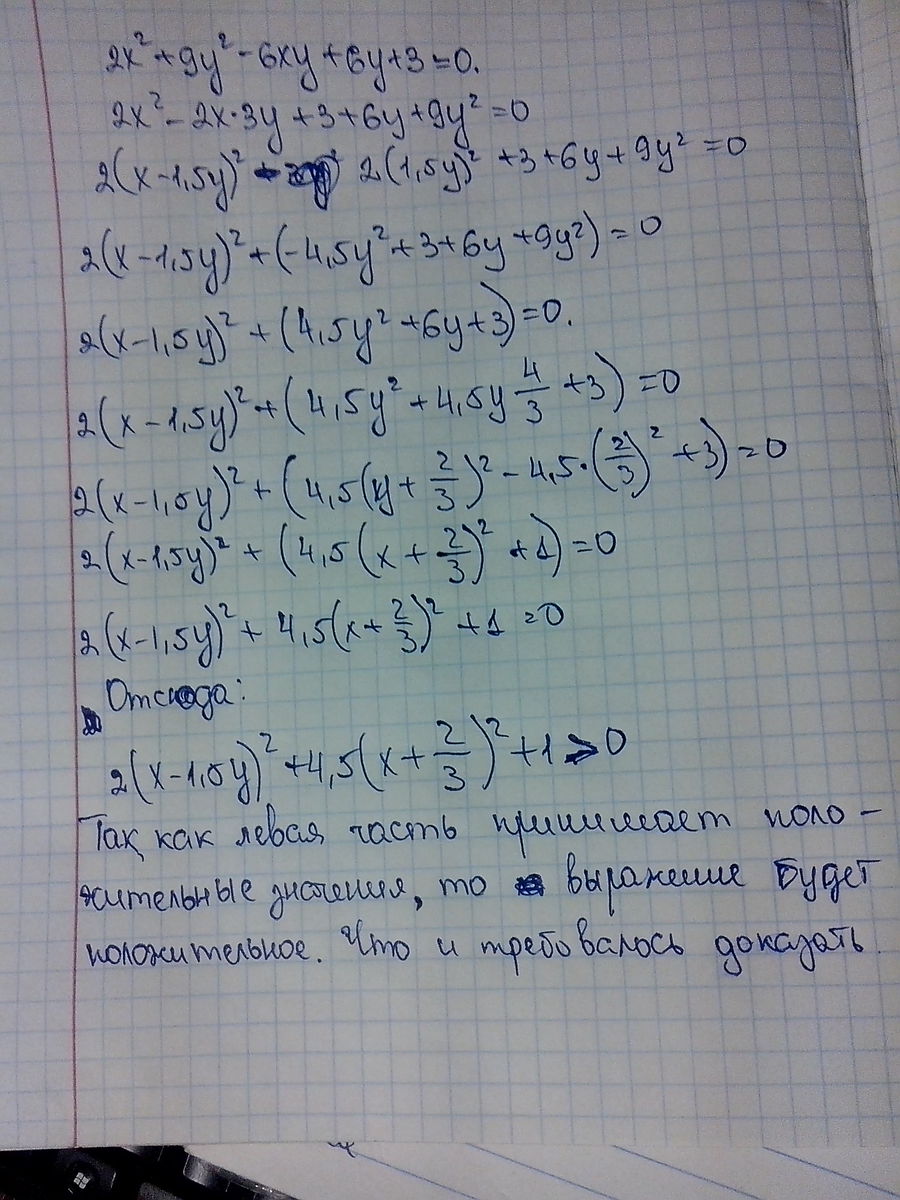 2x² + 9y² - 6xy + 6y + 3 = 0.
2x² - 2x·3y + 3 + 6y + 9y² = 0
2(x - 1,5y)² - 2(1,5y)² + 3 + 6y + 9y² = 0
2(x - 1,5y)² + (-4,5y² + 3 + 6y + 9y²) = 0
2(x - 1,5y)² + (4,5y² + 6y + 3) = 0.
2(x - 1,5y)² + (4,5y² + 4,5y 4/3 + 3) = 0
2(x - 1,5y)² + (4,5(y + 2/3)² - 4,5·(2/3)² + 3) = 0
2(x - 1,5y)² + (4,5(x + 2/3)² + 1) = 0
2(x - 1,5y)² + 4,5(x + 2/3)² + 1 = 0
Отсюда:
2(x - 1,5y)² + 4,5(x + 2/3)² + 1 > 0
Так как левая часть принимает поло-
жительные значения, то выражение будет
положительное. Что и требовалось доказать.